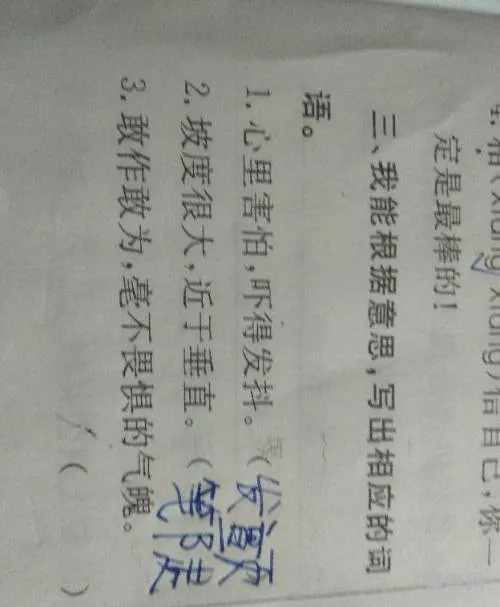 4.相(xiāng xiàng)信自己,你一
定是最棒的!
三、我能根据意思,写出相应的词
语。
1.心里害怕,吓得发抖。(发颤
2.坡度很大,近于垂直。(笔陡
3.敢作敢为,毫不畏惧的气魄。
( )